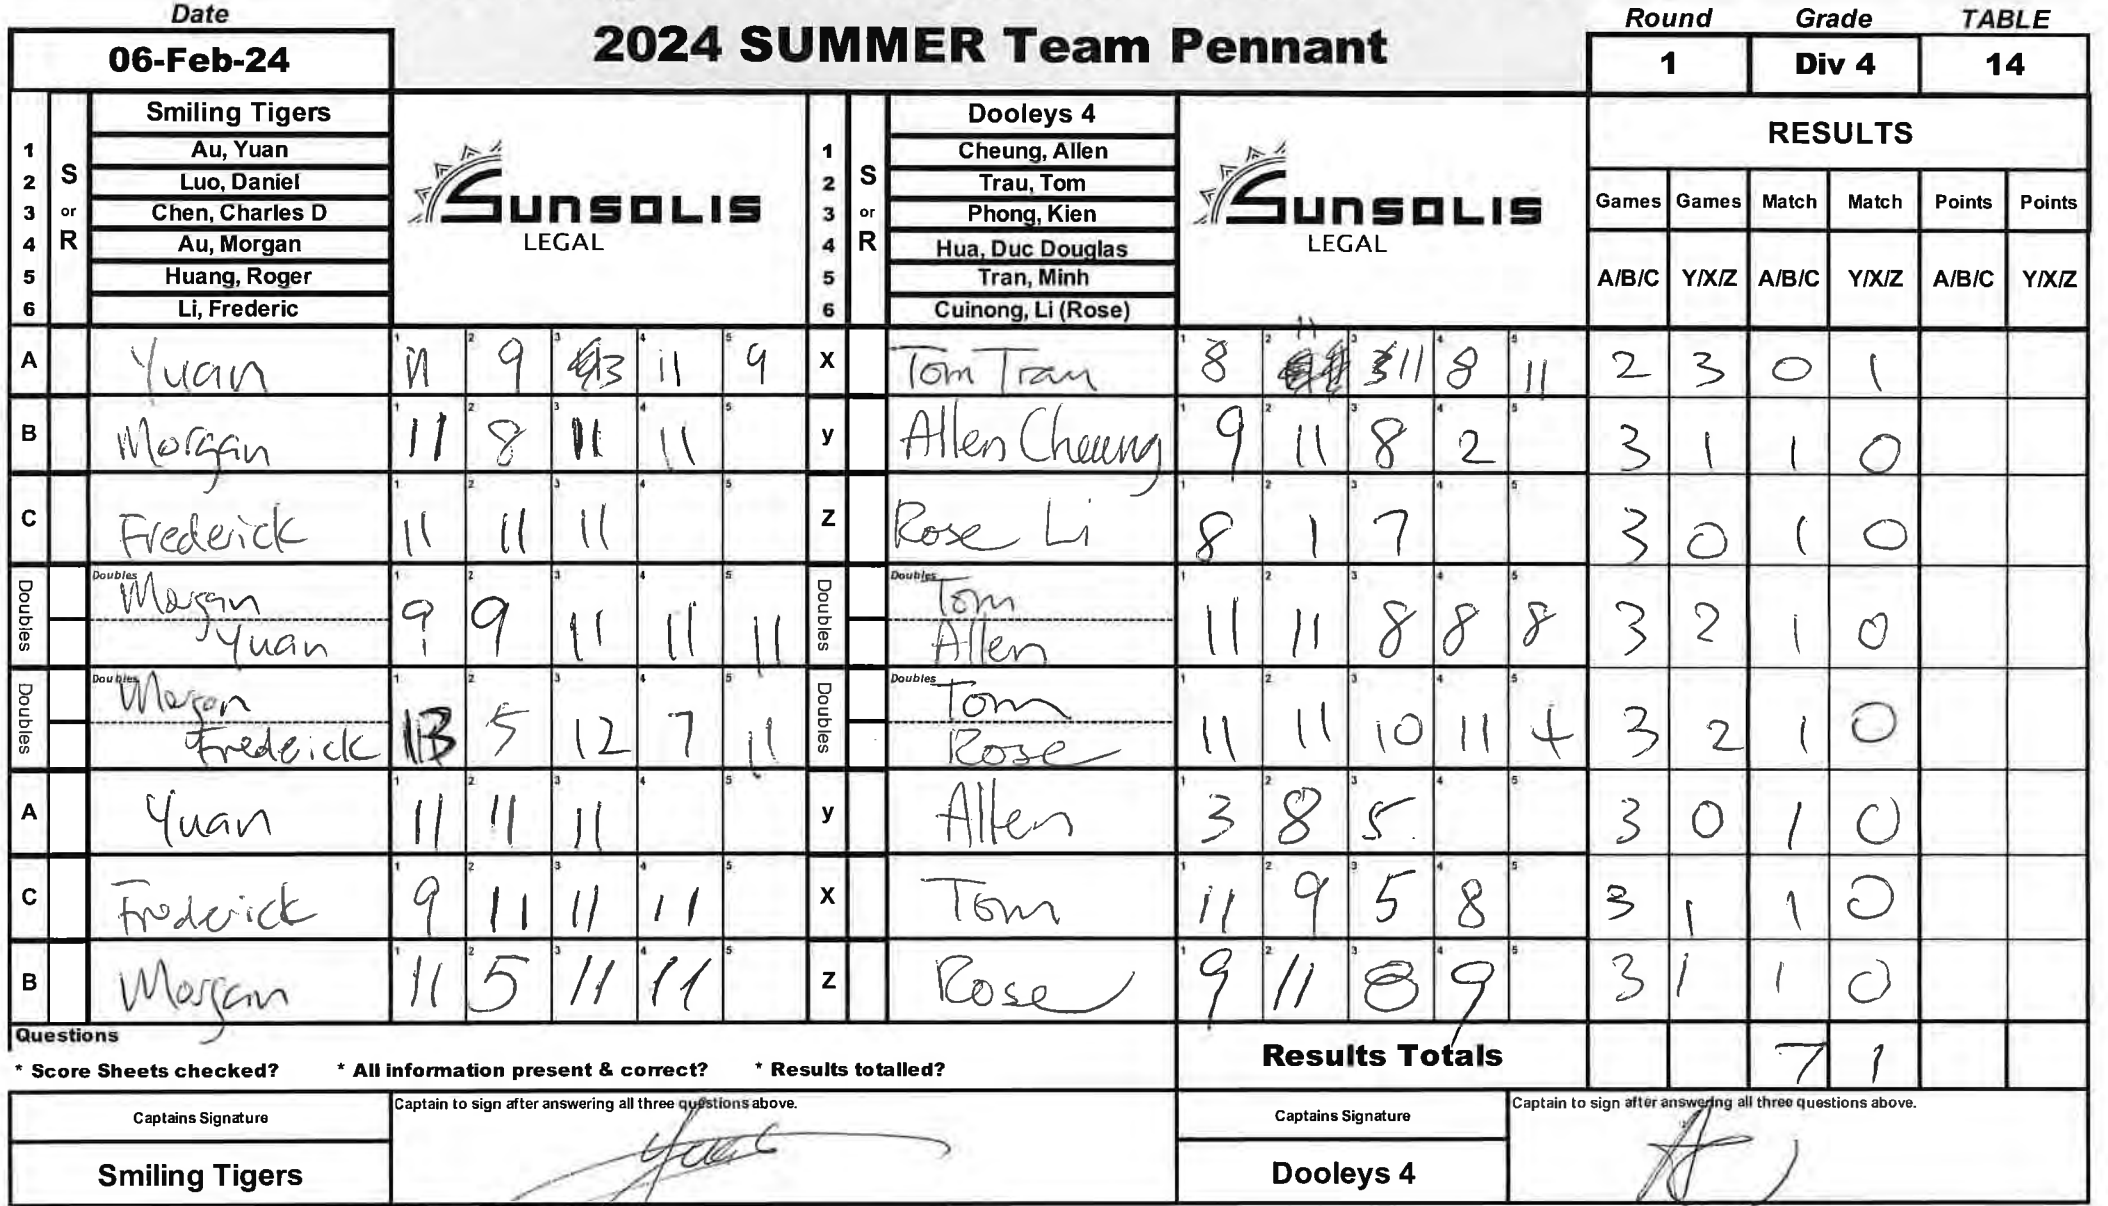 Date
2024 SUMMER Team Pennant
Round Grade TABLE
06-Feb-24
1 Div 4 14
Smiling Tigers
Dooleys 4
RESULTS
S or R
1 Au, Yuan
2 Luo, Daniel
3 Chen, Charles D
4 Au, Morgan
5 Huang, Roger
6 Li, Frederic
SUNSOLIS
LEGAL
S or R
1 Cheung, Allen
2 Trau, Tom
3 Phong, Kien
4 Hua, Duc Douglas
5 Tran, Minh
6 Cuinong, Li (Rose)
SUNSOLIS
LEGAL
Games Games Match Match Points Points
A/B/C Y/X/Z A/B/C Y/X/Z A/B/C Y/X/Z
A Yuan 11 9 3 11 9 X Tom Tran 8 11 11 8 11 2 3 0 1
B Morgan 11 8 11 11 y Allen Cheung 9 11 8 2 3 1 1 0
C Frederick 11 11 11 Z Rose Li 8 1 7 3 0 1 0
Doubles Doubles Morgan Yuan 9 9 11 11 11 Doubles Doubles Tom Allen 11 11 8 8 8 3 2 1 0
Doubles Doubles Morgan Frederick 13 5 12 7 11 Doubles Doubles Tom Rose 11 11 10 11 4 3 2 1 0
A Yuan 11 11 11 y Allen 3 8 5 3 0 1 0
C Frederick 9 11 11 11 X Tom 11 9 5 8 3 1 1 0
B Morgan 11 5 11 11 Z Rose 9 11 8 9 3 1 1 0
Questions
* Score Sheets checked? * All information present & correct? * Results totalled?
Results Totals 7 1
Captains Signature
Captain to sign after answering all three questions above.
Captains Signature
Captain to sign after answering all three questions above.
Smiling Tigers
Dooleys 4